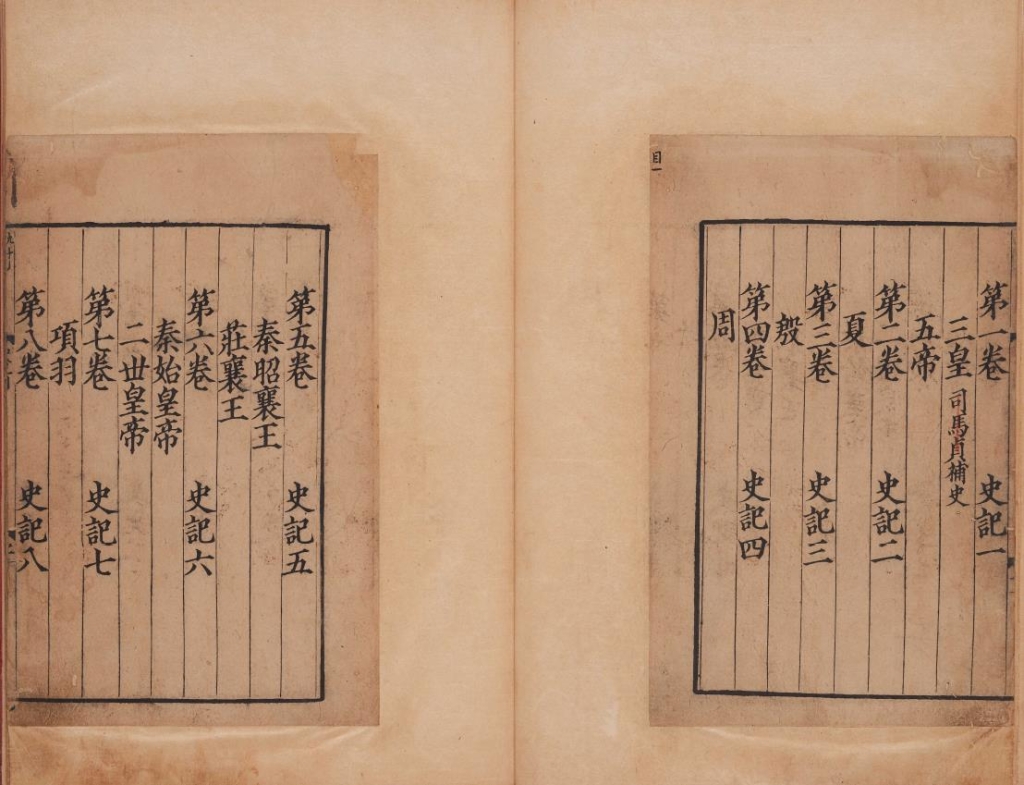 目一
第一卷 史記一
三皇 司馬貞補史
五帝
第二卷 史記二
夏
第三卷 史記三
殷
第四卷 史記四
周
第五卷 史記五
秦昭襄王
莊襄王
第六卷 史記六
秦始皇帝
二丗皇帝
第七卷 史記七
項羽
第八卷 史記八